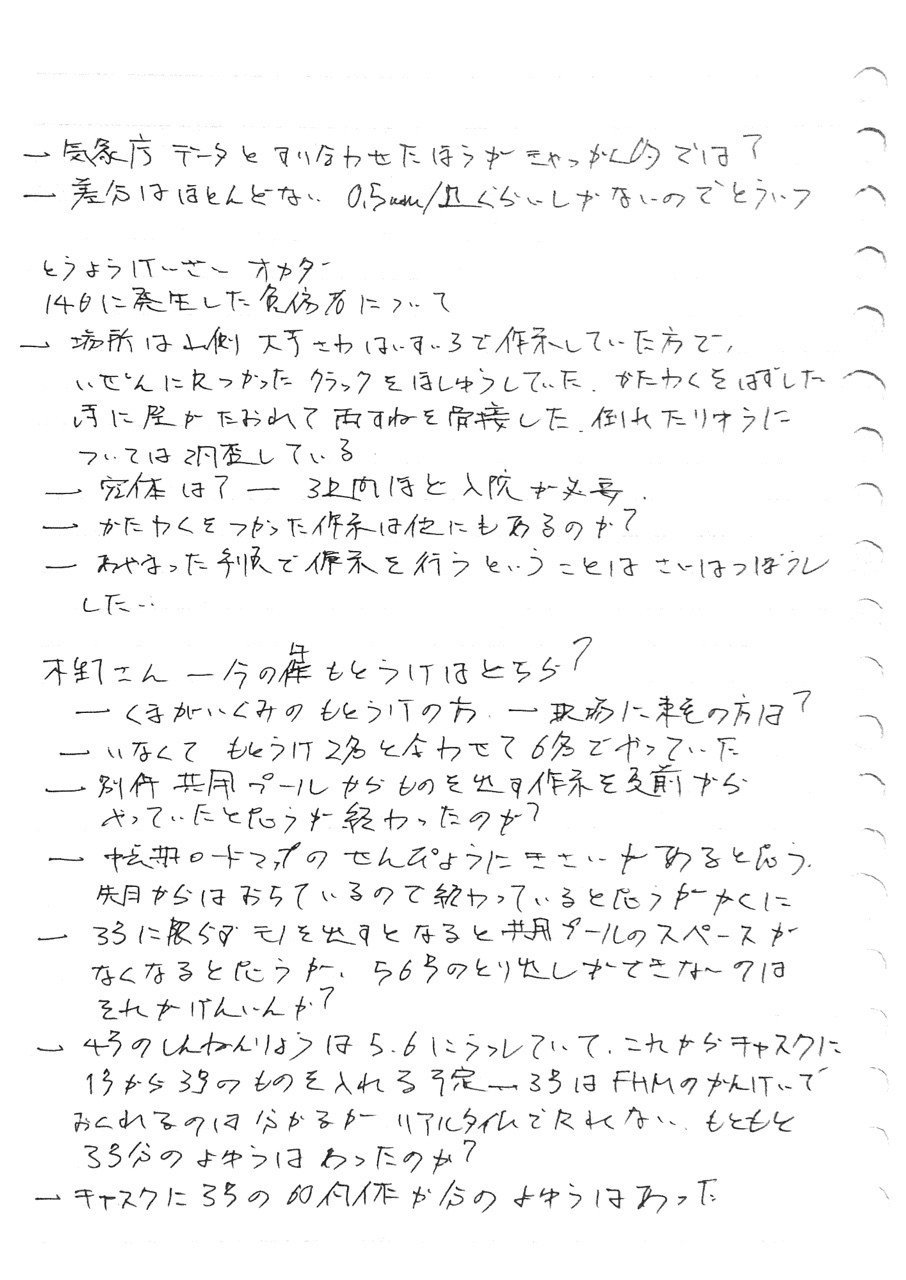 ― 気象庁データとすり合わせたほうがきゃっかく的では?
― 差分はほとんどない 0.5mm/日くらいしかないのでどういつ
とうようけーざー オカダー
14日に発生した負傷者について
― 場所は山側 大手さわはいすいろで作業していた方で、
いぜんに見つかったクラックをほしゅうしていた.かたわくをはずした
時に がたおれて両すねを骨接した.倒れたりゆうに
ついては調査している
― 容体は? ― 3週間ほど入院が必要.
― かたわくをつかった作業は他にもあるのか?
― あやまった手順で作業を行うということは さいはつぼうし
した…
木野さん ― 今の件 もとうけはどちら?
― くまがいぐみのもとうけの方. ― 現場に東電の方は?
― いなくて もとうけ2名と合わせて6名でやっていた
― 別件 共用プールからものを出す作業を 前から
やっていたと思うが終わったのか?
― 中長期ロードマップのせんぴょうにきさいがあると思う.
先月からはおちているので終わっていると思うが かくに
― 3号に限らずモノを出すとなると共用プールのスペースが
なくなると思うが、5 6号のとり出しができない のは
それがげんいんか?
― 4号のしんねんりょうは5.6にうつしていて、これからキャスクに
1号から3号のものを入れる予定 ― 3号はFHMのかんけいで
おくれるのは分かるが リアルタイムで入れない.もともと
3号分のよゆうはあったのか?
― キャスクに3号の60 体 分のよゆうはあった